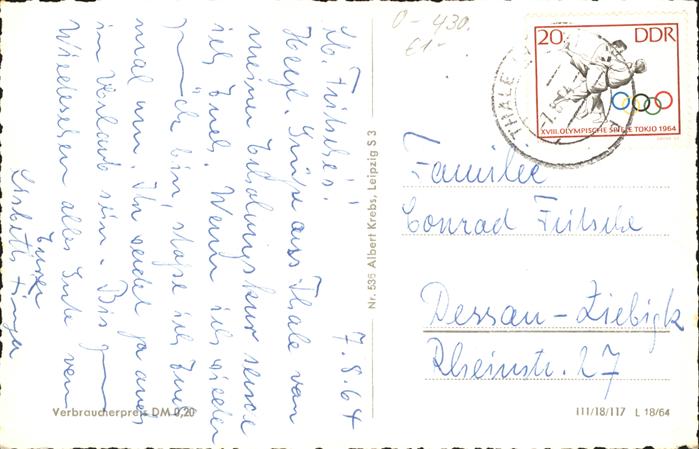 7.8.64
Lb. Fritsche's!
Herzl. Grüße aus Thale von
meiner Erholungskur sende
ich Euch. Wenn ich wieder
bin, ich Euch
mal an. Ihr werdet ja auch
im Urlaub sein. Bis zum
Wiedersehen alles Gute von
Eurer
Lisbeth
Verbraucherpreis DM 0,20
Nr. 536 Albert Krebs, Leipzig S 3
0-430.
€1-
20 DDR
XVIII. OLYMPISCHE SPIELE TOKIO 1964
THALE
Familie
Conrad Fritsche
Dessau-Ziebigk
Rheinstr. 27
III/18/117 L 18/64